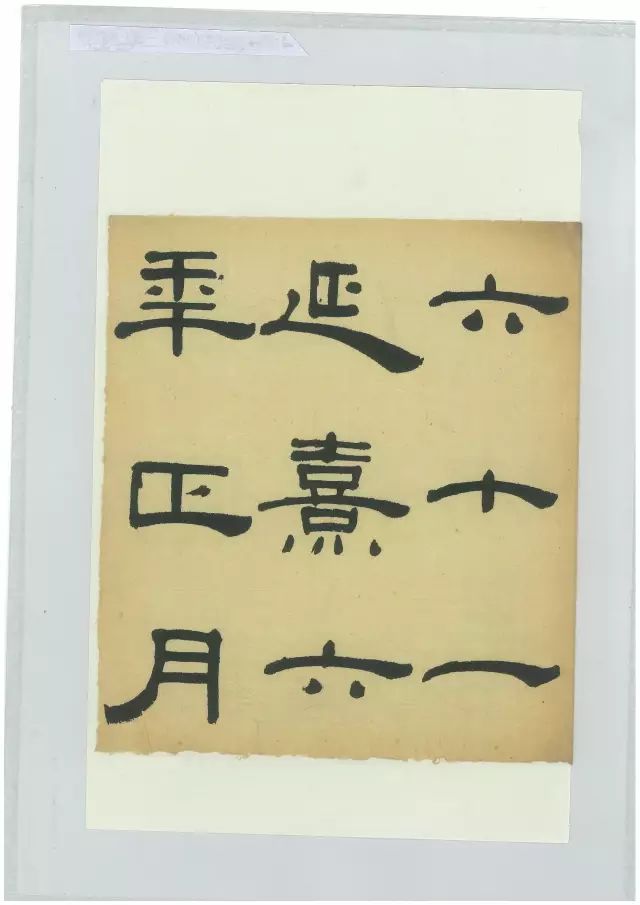 六十一
延熹六
年正月